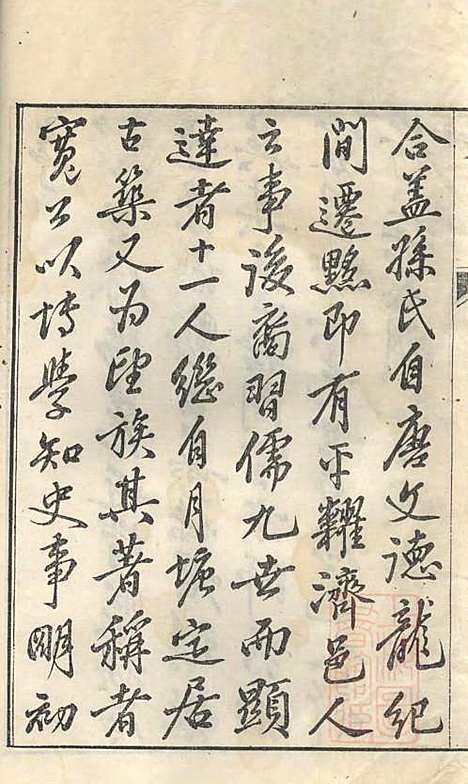 合盖孫氏自唐文德龍紀
間遷黟即有平糶濟邑人
之事後裔習儒九世而顯
達者十一人繼自月塘定居
古築又为望族其著稱者
寬公以博學知史事明初